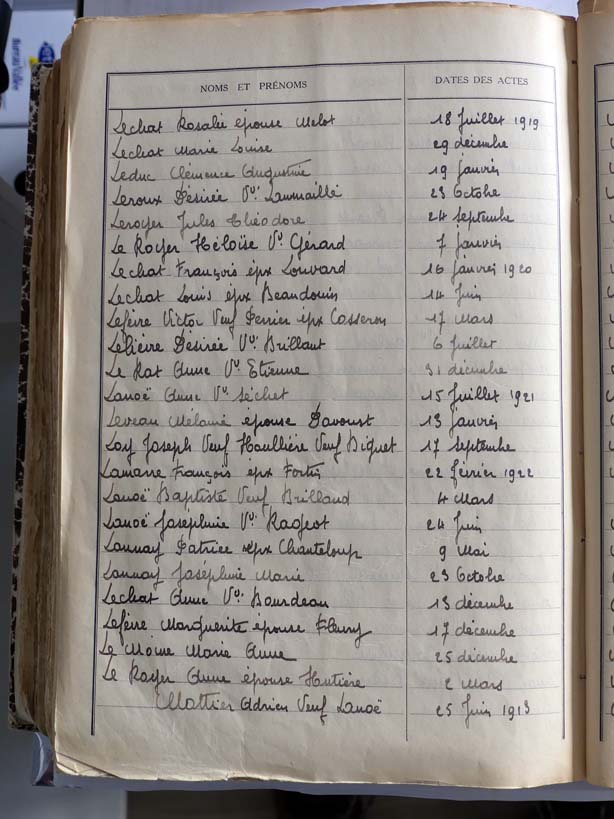 NOMS ET PRÉNOMS DATES DES ACTES
Lechat Rosalie épouse Melot 18 Juillet 1919
Lechat Marie Louise 29 décembre
Leduc Clémence Augustine 19 janvier
Leroux Désirée Vve Laumaillé 23 Octobre
Leroyer Jules Théodore 24 Septembre
Le Royer Héloïse Vve Gérard 7 janvier
Lechat François épx Louvard 16 janvier 1920
Lechat Louis épx Beaudouin 14 Juin
Lefèvre Victor Veuf Perrier épx Casseron 17 Mars
Lelièvre Désirée Vve Brillant 6 Juillet
Le Rat Anne Vve Etienne 31 décembre
Lanoë Anne Vve Séchet 15 Juillet 1921
Leveau Mélanie épouse Davoust 13 janvier
Loy Joseph Veuf Houllière Veuf Biquet 17 Septembre
Lamarre François épx Fortin 22 février 1922
Lanoë Baptiste Veuf Brilland 4 Mars
Lanoë Joséphine Vve Rageot 24 Juin
Launay Patrice épx Chanteloup 9 Mai
Launay Joséphine Marie 23 Octobre
Lechat Anne Vve Bourdeau 13 décembre
Lefèvre Marguerite épouse Fleury 17 décembre
Le Moine Marie Anne 25 décembre
Le Royer Anne épouse Hutière 2 Mars
Mottier Adrien Veuf Lanoë 25 Juin 1913